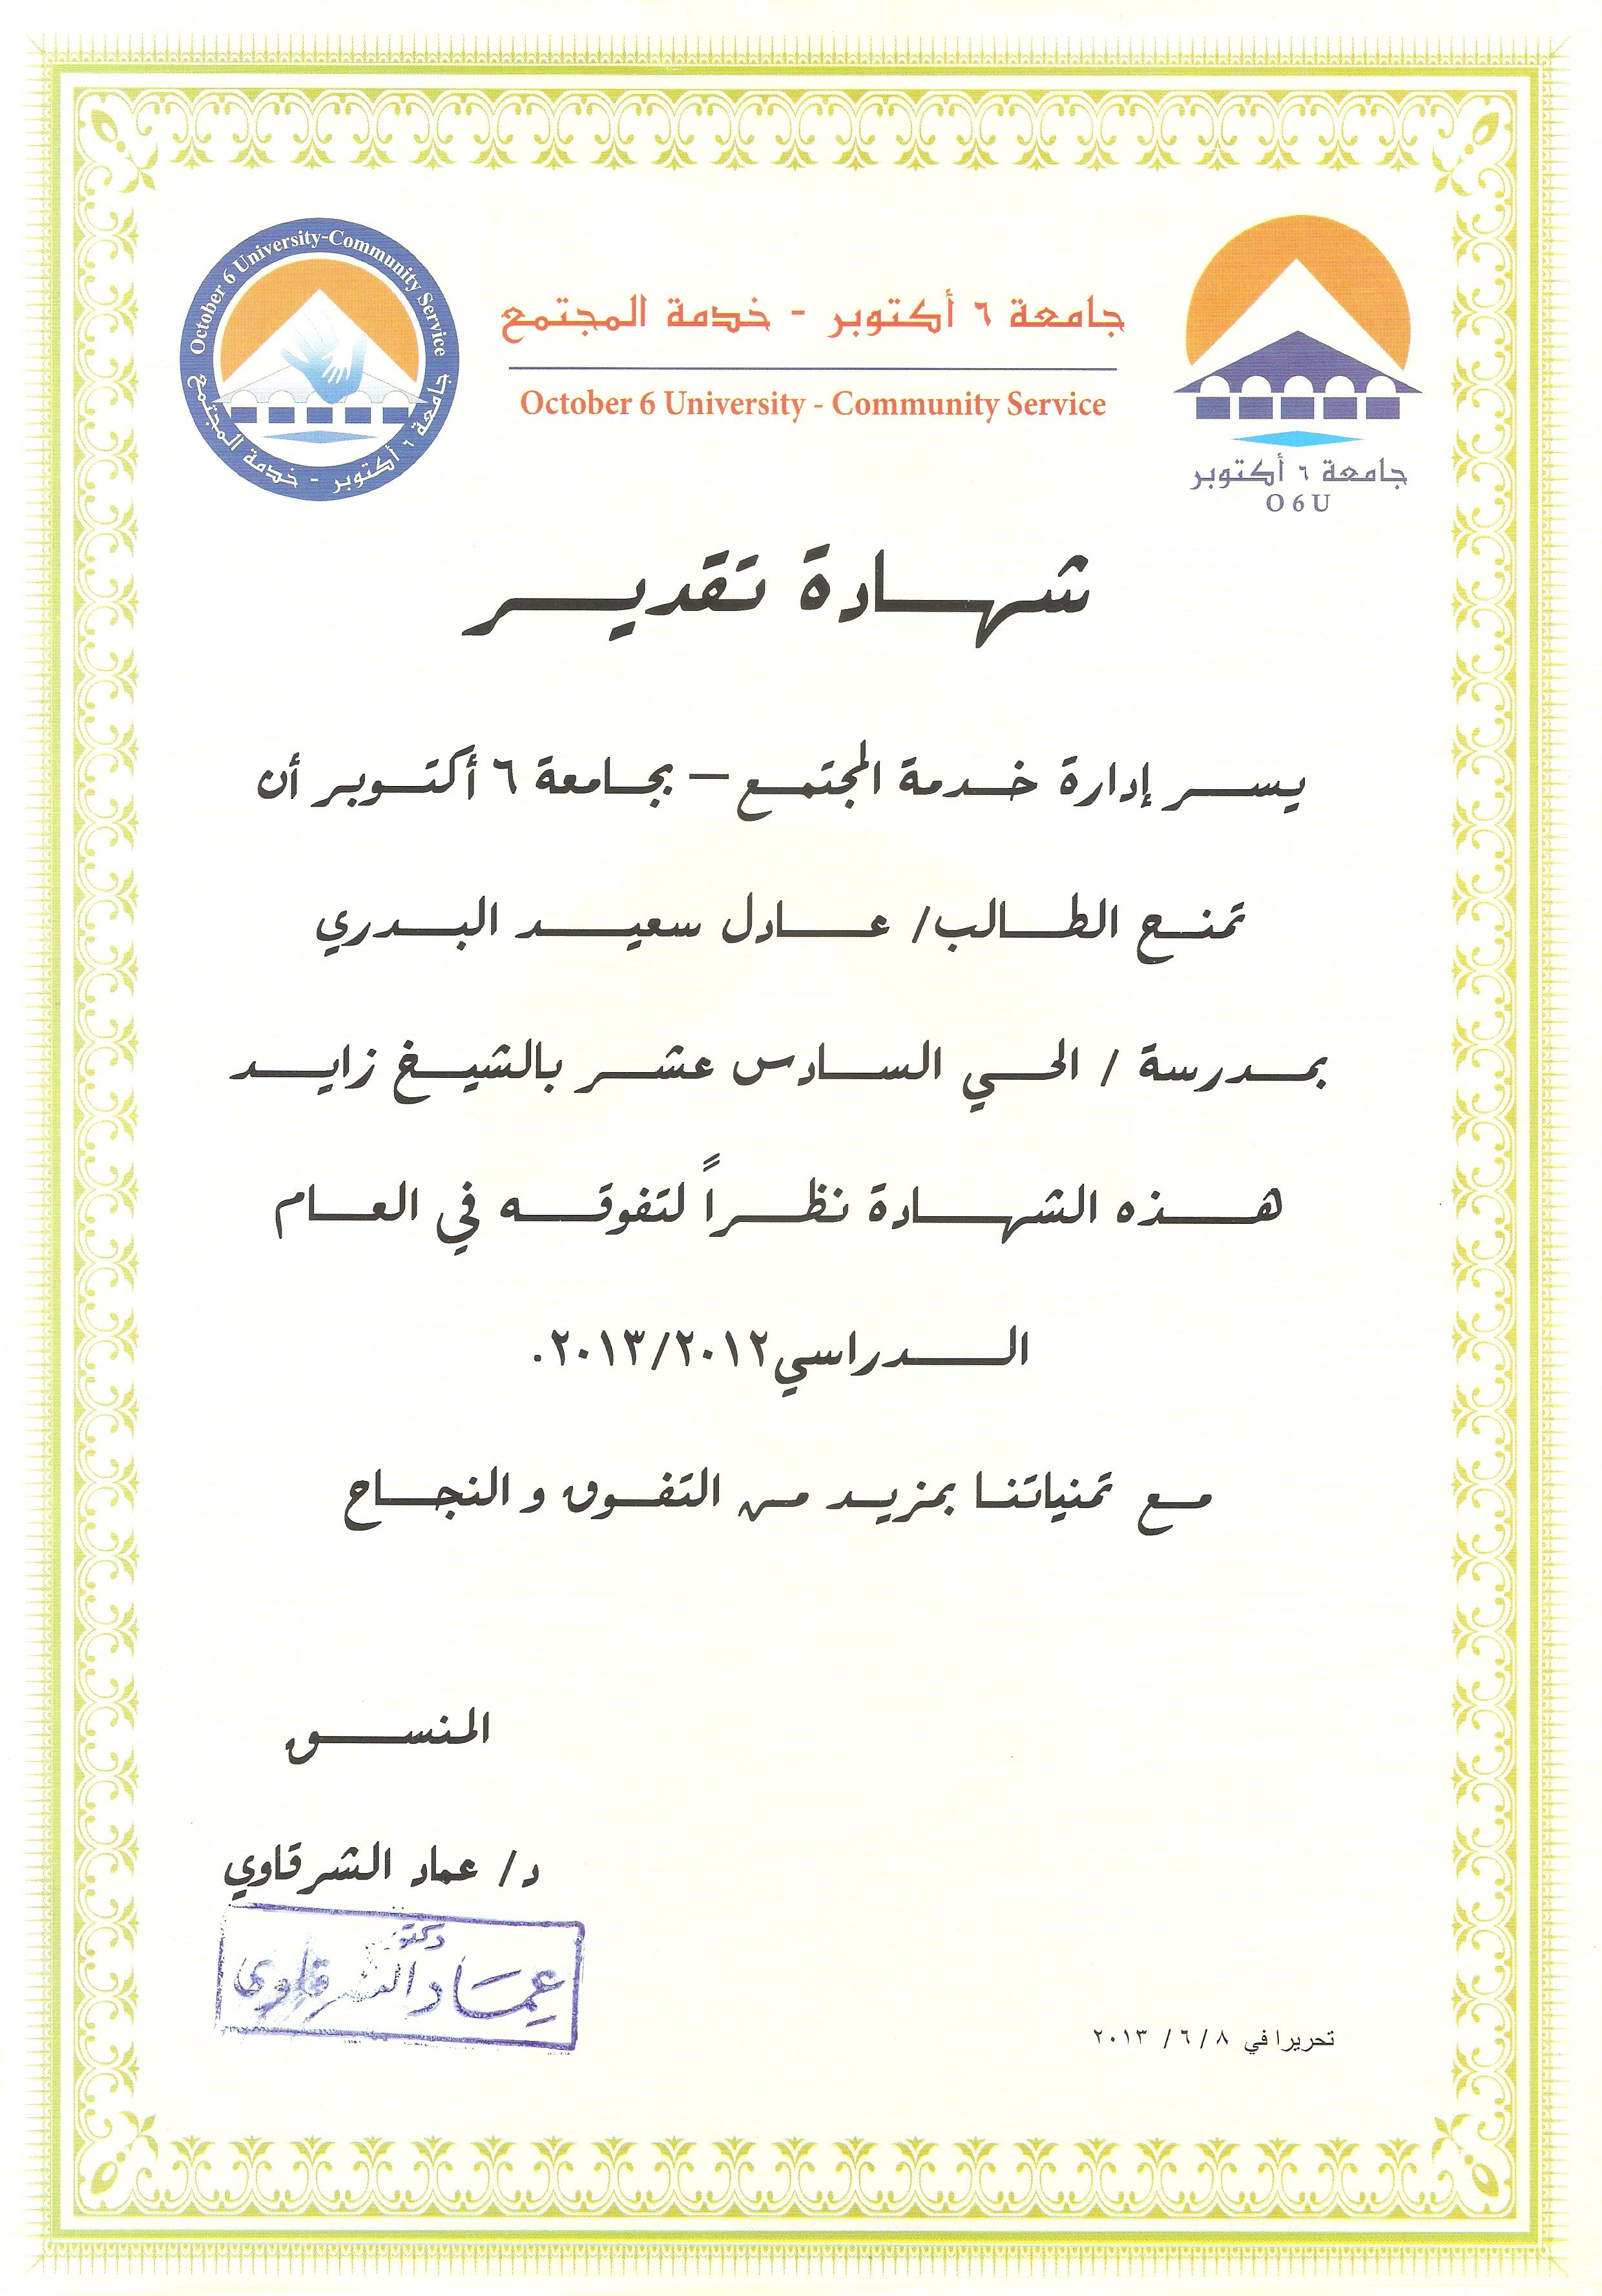 October 6 University-Community Service
جامعة ٦ أكتوبر - خدمة المجتمع
جامعة ٦ أكتوبر - خدمة المجتمع
October 6 University - Community Service
جامعة ٦ أكتوبر
O6U
شهادة تقدير
يسر إدارة خدمة المجتمع – بجامعة ٦ أكتوبر أن
تمنح الطالب/ عادل سعيد البدري
بمدرسة / الحي السادس عشر بالشيخ زايد
هذه الشهادة نظراً لتفوقه في العام
الدراسي٢٠١٣/٢٠١٢.
مع تمنياتنا بمزيد من التفوق و النجاح
المنسق
د/ عماد الشرقاوي
دكتور
عماد الشرقاوى
تحريرا في ٨ / ٦ / ٢٠١٣